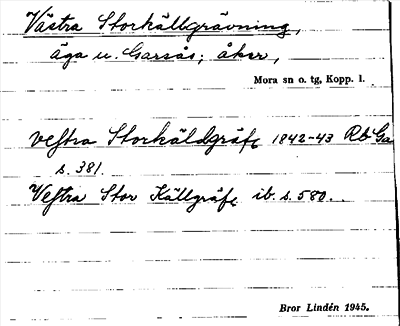 Västra Storkällgrävning,
äga u. Garsås; åker,
Mora sn o. tg, Kopp. l.
veftra Storkäldgräfn 1842-43 Rb Ga
s. 381.
Veftra Stor Källgräfn ib. s. 580.
Bror Lindén 1945.